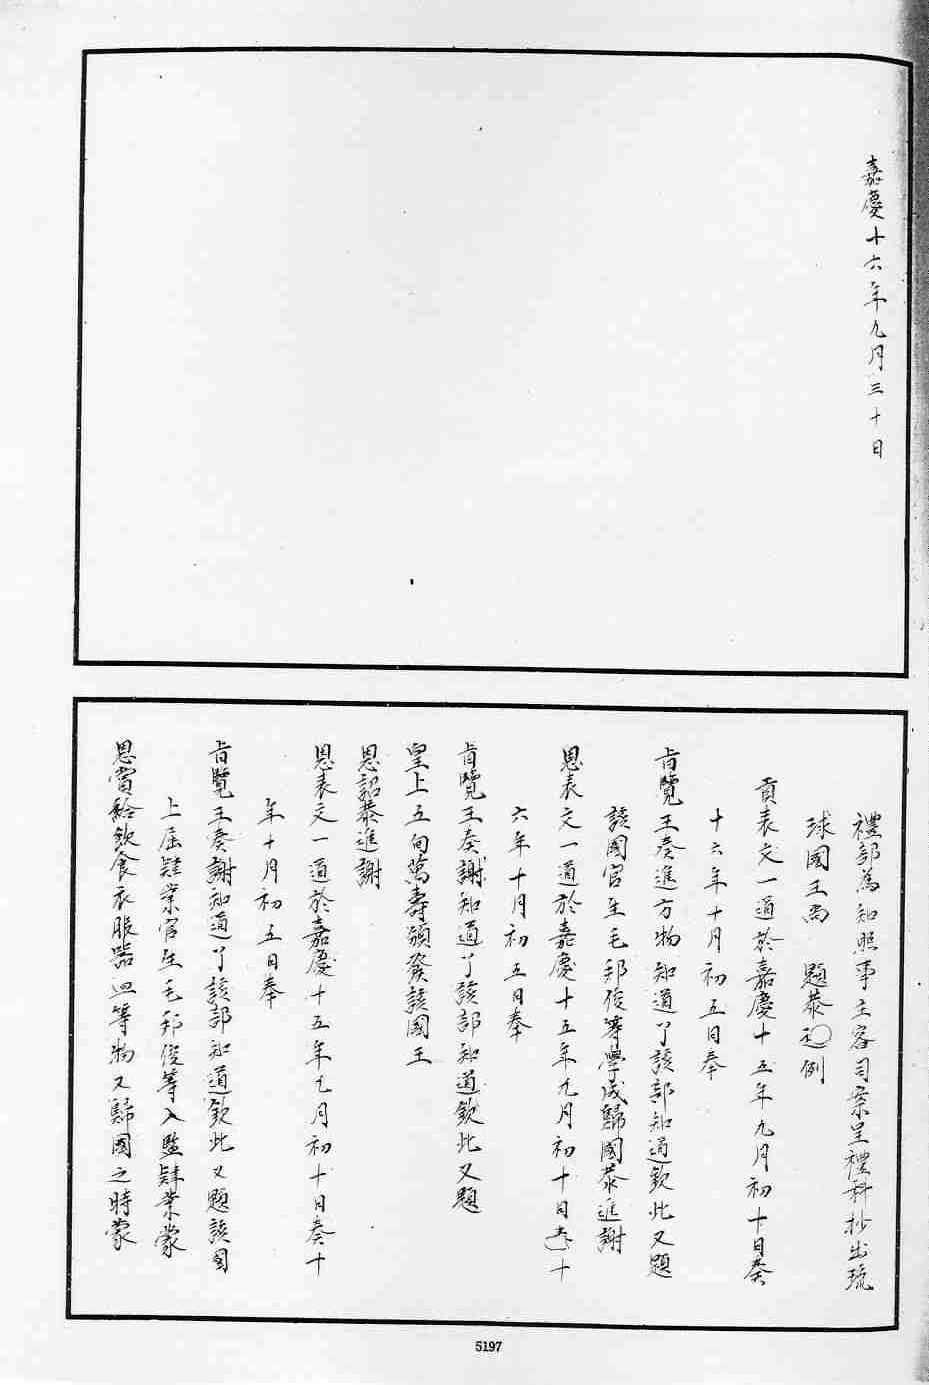 嘉慶十六年九月三十日
禮部為知照事主客司案呈禮科抄出琉
球國王尚 題恭 例
貢表文一道於嘉慶十五年九月初十日奏
十六年十月初五日奉
旨覽王奏進方物知道了該部知道欽此又題
該國官生毛邦俊等學成歸國恭進謝
恩表文一道於嘉慶十五年九月初十日 十
六年十月初五日奉
旨覽王奏謝知道了該部知道欽此又題
皇上五旬萬壽頒發該國王
恩詔恭進謝
恩表文一道於嘉慶十五年九月初十日奏十
年十月初五日奉
旨覽王奏謝知道了該部知道欽此又題該國
上屆肄業官生毛邦俊等入監肄業蒙
恩賞給飲食衣服器皿等物又歸國之時蒙
5197